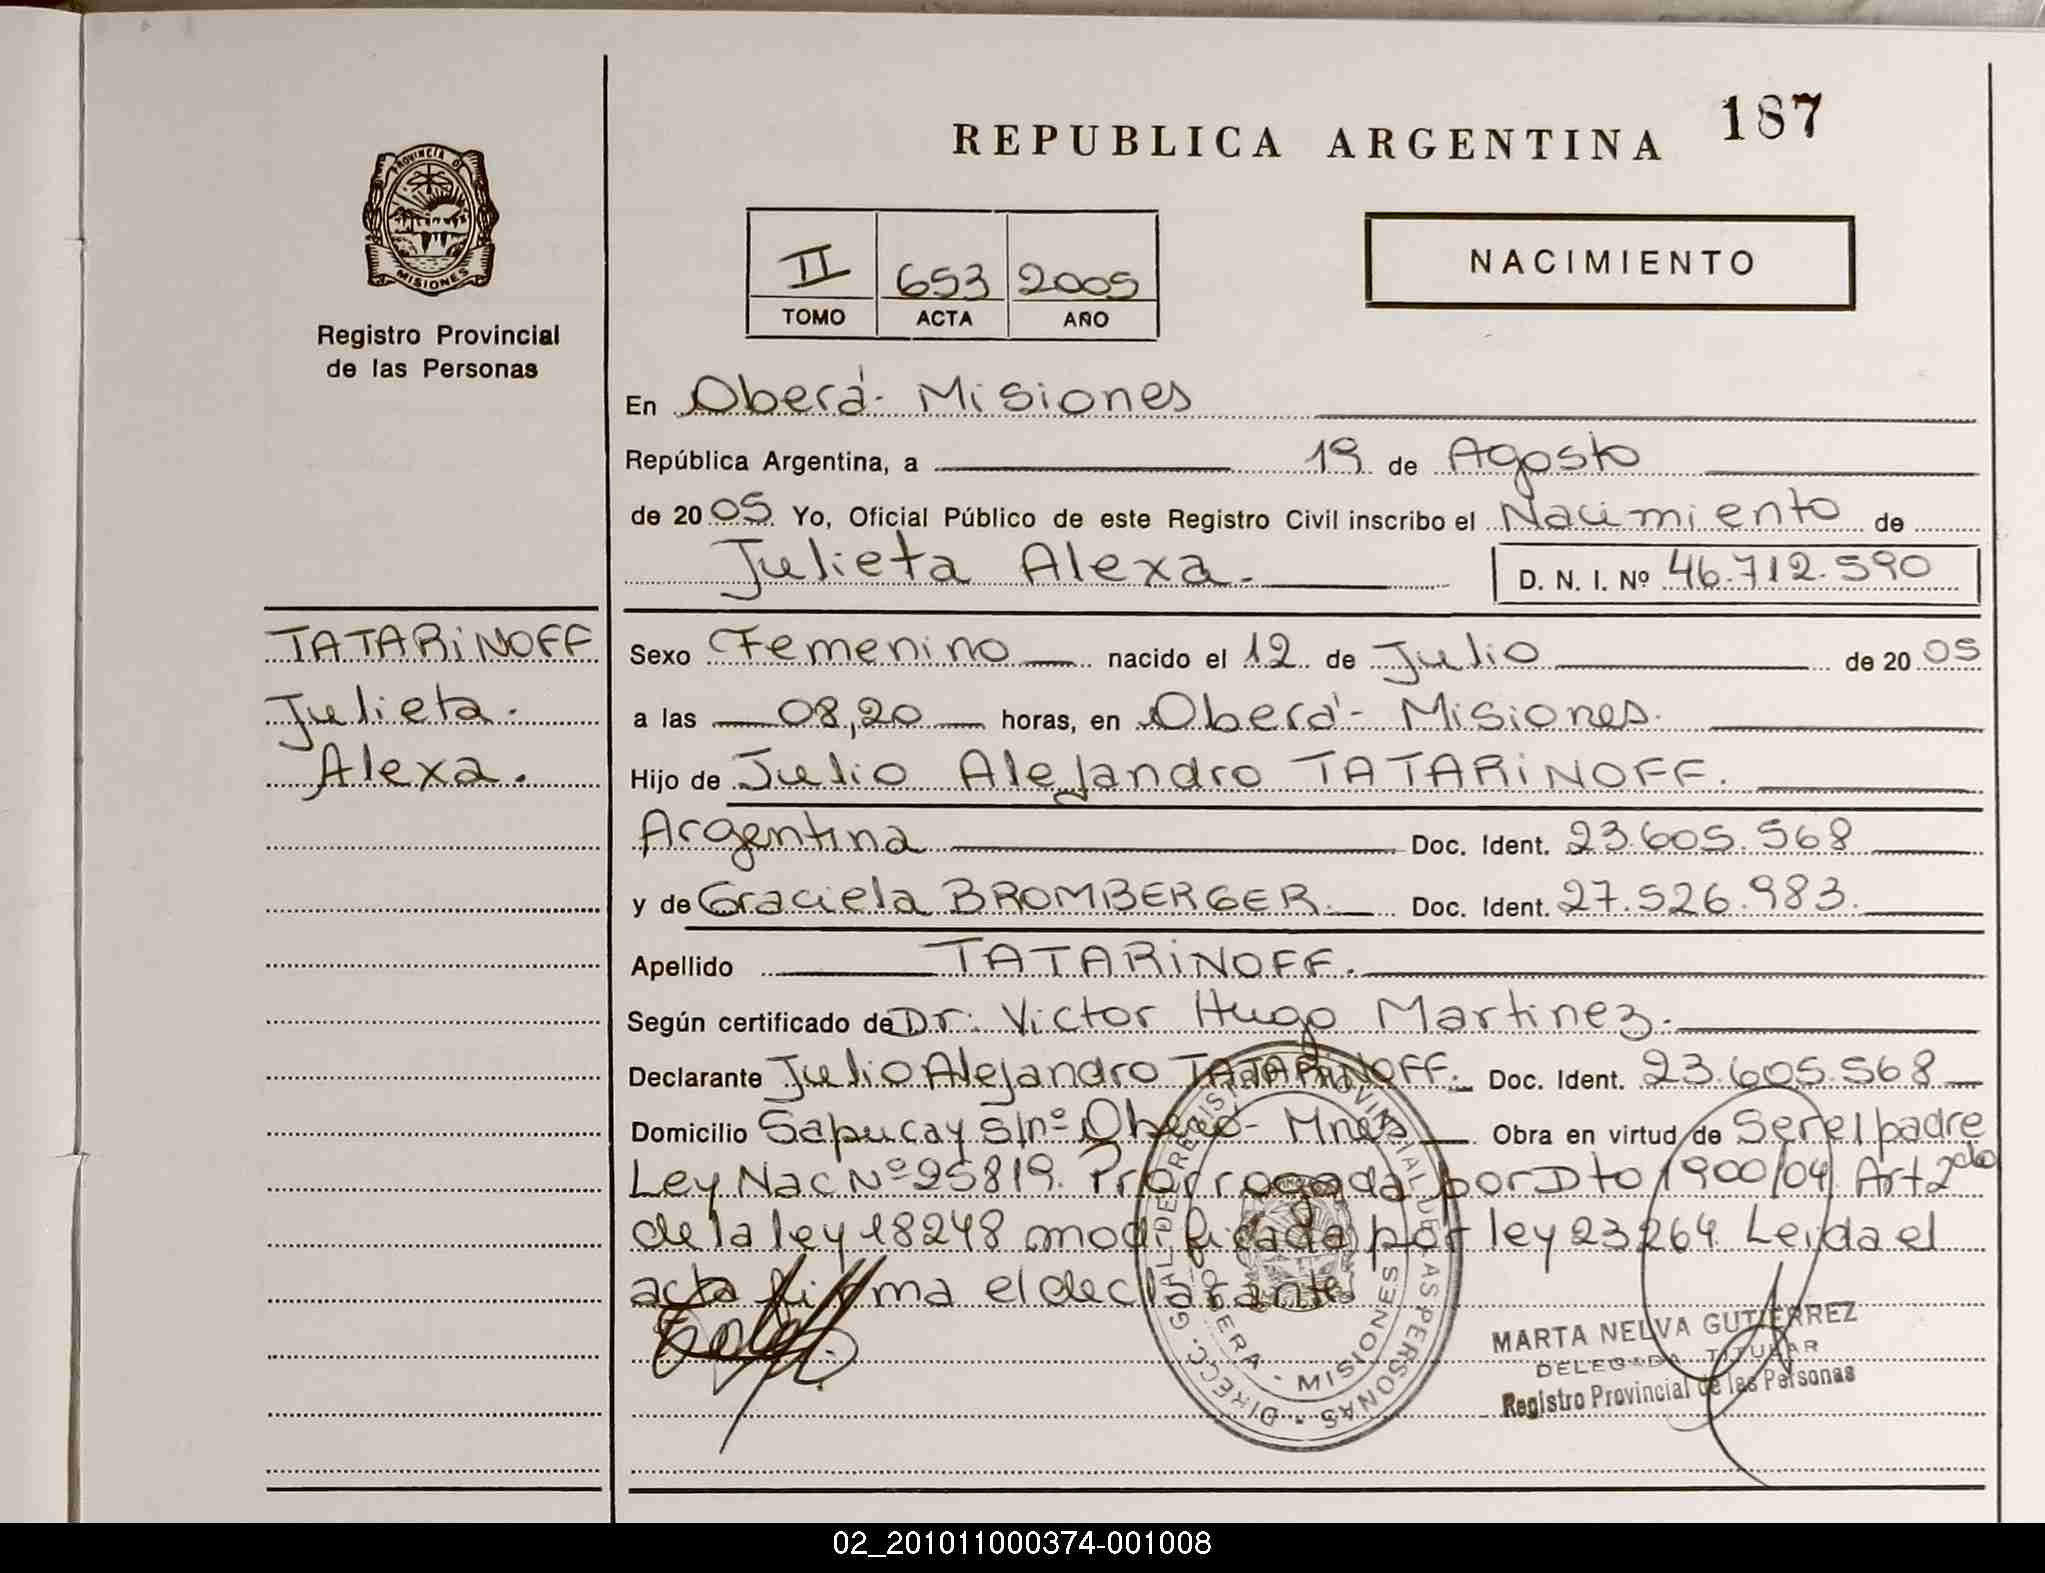 REPUBLICA ARGENTINA 187
PROVINCIA DE
MISIONES
Registro Provincial
de las Personas
II 653 2005
TOMO ACTA AÑO
NACIMIENTO
En Oberá - Misiones
República Argentina, a 19 de Agosto
de 2005 Yo, Oficial Público de este Registro Civil inscribo el Nacimiento de
Julieta Alexa.- D. N. I. Nº 46.712.590
TATARiNOFF
Julieta.
Alexa.
Sexo Femenino nacido el 12 de Julio de 2005
a las 08,20 horas, en Oberá - Misiones.
Hijo de Julio Alejandro TATARiNOFF.
Argentina Doc. Ident. 23.605.568
y de Graciela BROMBERGER. Doc. Ident. 27.526.983.
Apellido TATARiNOFF.
Según certificado de Dr. Victor Hugo Martinez.
Declarante Julio Alejandro TATARiNOFF. Doc. Ident. 23.605.568
Domicilio Sapucay s/nº Oberá - Mnes Obra en virtud de Ser el padre
Ley Nac Nº 25819. Prorrogada por Dto 1900/04 Art 2do
de la ley 18248 modificada por ley 23264. Leida el
acta firma el declarante.
DIRECC. GRAL. DE REGISTRO PROVINCIAL DE LAS PERSONAS - MISIONES
MARTA NELVA GUTIERREZ
DELEGADA TITULAR
Registro Provincial de las Personas
02_201011000374-001008